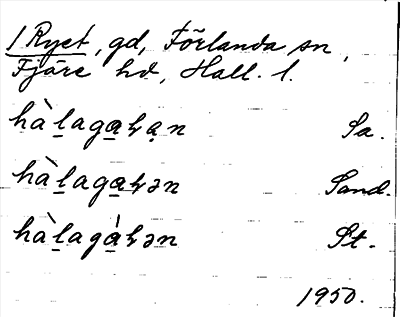 1 Ryet, gd, Förlanda sn,
Fjäre hd, Hall. l.
hàlagaḥạn Sa.
hàlagaḥən Sand.
hàlagàḥən St.
1950.